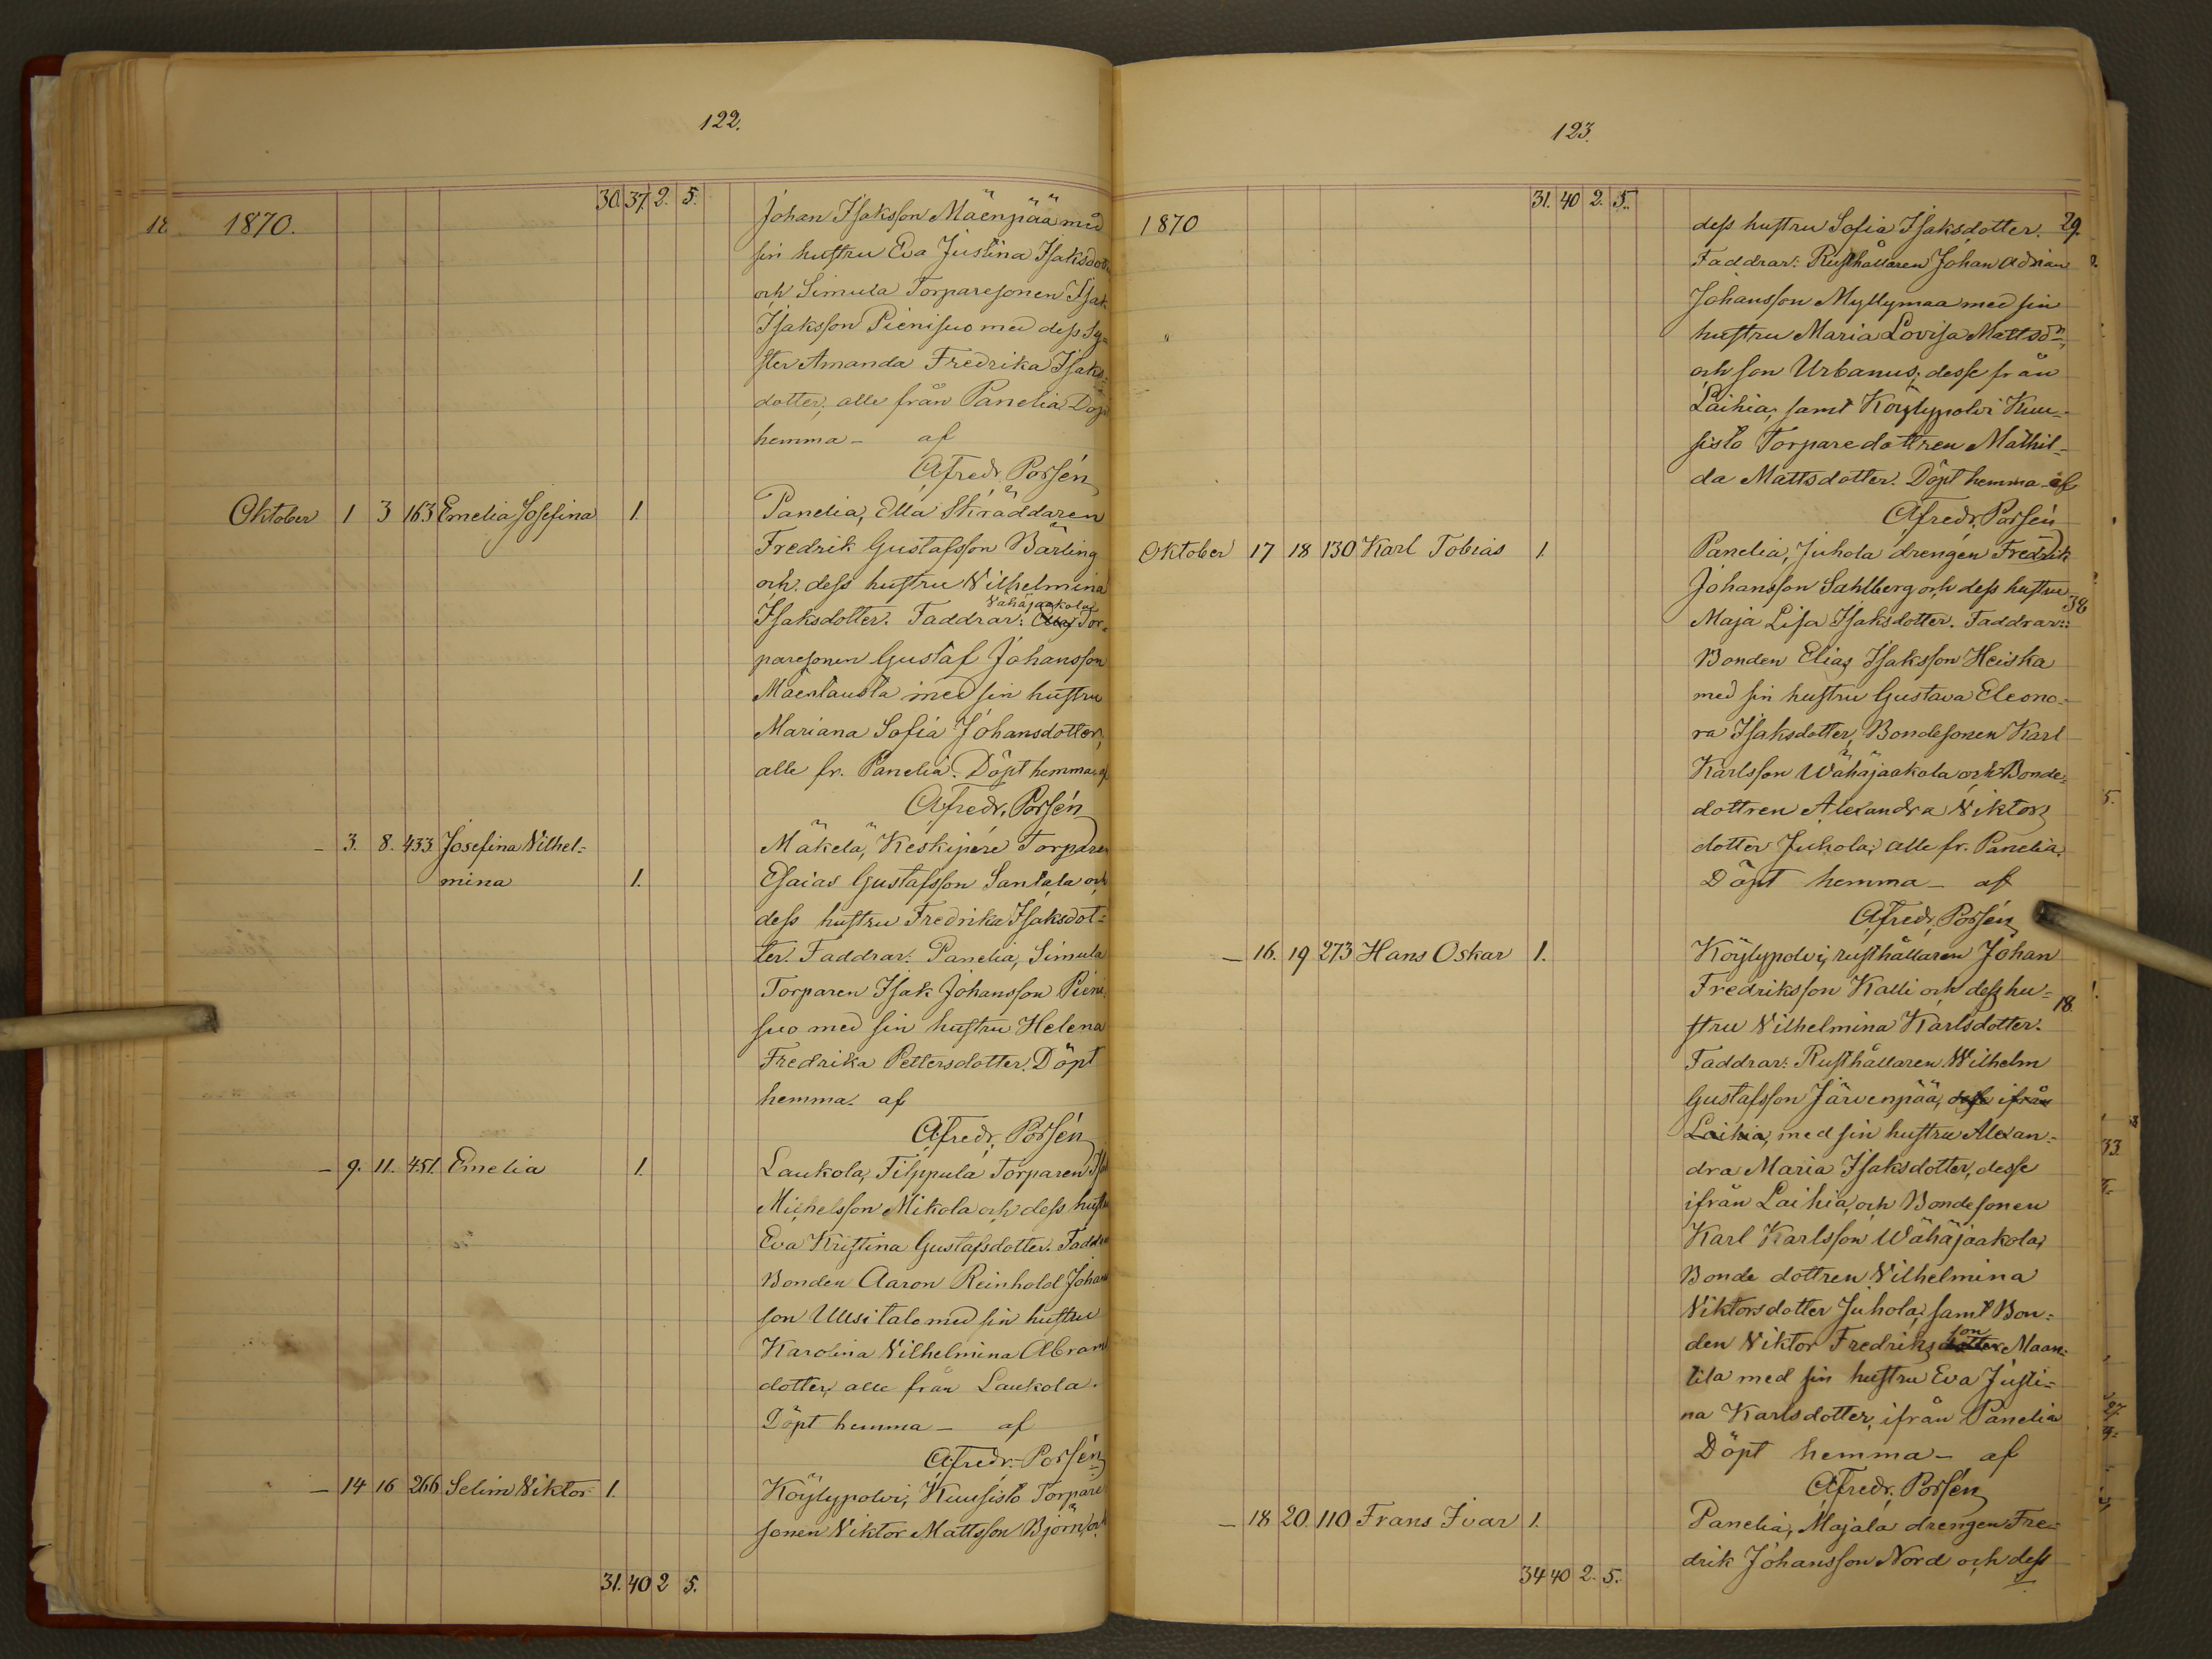 122.
30. 37. 2. 5.
18 1870.
Johan Isaksson Mäenpää med
sin hustru Eva Justina Isaksdott
och Simula Torparesonen Isak
Isaksson Pienisuo med dess Sy-
ster Amanda Fredrika Isaks-
dotter; alle från Panelia. Döpt
hemma – af
Afredr. Porsén
Oktober 1 3 163 Emelia Josefina 1. Panelia, Ella Skräddaren
Fredrik Gustafsson Bärling
och dess hustru Vilhelmina
Vähäjaakola
Isaksdotter. Faddrar: Tor-
paresonen Gustaf Johansson
Mäentausta med sin hustru
Mariana Sofia Johansdotter,
alle fr. Panelia. Döpt hemma af
Afredr. Porsén
– 3. 8. 433 Josefina Vilhel- Mäkelä, Keskipere Torparen
mina 1. Esaias Gustafsson Santala och
dess hustru Fredrika Isaksdot-
ter. Faddrar: Panelia, Simula
Torparen Isak Johansson Pieni-
suo med sin hustru Helena
Fredrika Pettersdotter. Döpt
hemma af
Afredr. Porsén
– 9. 11. 451 Emelia 1. Laukola, Filppula Torparen Isak
Michelsson Mikola och dess hustru
Eva Kristina Gustafsdotter. Faddrar
Bonden Aaron Reinhold Johans
son Uusitalo med sin hustru
Karolina Vilhelmina Abrams
dotter, alle från Laukola.
Döpt hemma – af
Afredr. Porsén
– 14 16 266 Selim Viktor 1. Köylypolvi, Kuusisto Torpare
sonen Viktor Mattsson Björn, och
31. 40 2 5.
123.
31. 40 2. 5.
1870 dess hustru Sofia Isaksdotter. 29.
Faddrar: Rusthållaren Johan Adrian
Johansson Myllymaa med sin
hustru Maria Lovisa Mattsdr,
och son Urbanus; desse från
Laihia, samt Köylypolvi Kuu-
sisto Torparedottren Mathil-
da Mattsdotter. Döpt hemma af
Afredr. Porsén
Oktober 17 18 130 Karl Tobias 1. Panelia, Juhola drengen Fredrik
Johansson Sahlberg och dess hustru 38
Maja Lisa Isaksdotter. Faddrar:
Bonden Elias Isaksson Heiska
med sin hustru Gustava Eleono-
ra Isaksdotter, Bondesonen Karl
Karlsson Wähäjaakola och Bonde-
dottren Alexandra Viktors
dotter Juhola; alle fr. Panelia.
Döpt hemma – af
Afredr. Porsén
– 16. 19 273 Hans Oskar 1. Köylypolvi, rusthållaren Johan
Fredriksson Kalli och dess hu- 18.
stru Vilhelmina Karlsdotter.
Faddrar: Rusthållaren Wilhelm
Gustafsson Järvenpää, desse ifrån
Laihia, med sin hustru Alexan-
dra Maria Isaksdotter, desse
ifrån Laihia, och Bondesonen
Karl Karlsson Wähäjaakola,
Bonde dottren Vilhelmina
Viktorsdotter Juhola, samt Bon-
son
den Viktor Fredriksdotter Maan-
tila med sin hustru Eva Justi-
na Karlsdotter, ifrån Panelia
Döpt hemma – af
Afredr. Porsén
– 18 20. 110 Frans Ivar 1. Panelia, Majala drengen Fre-
drik Johansson Nord och dess
34 40 2. 5.